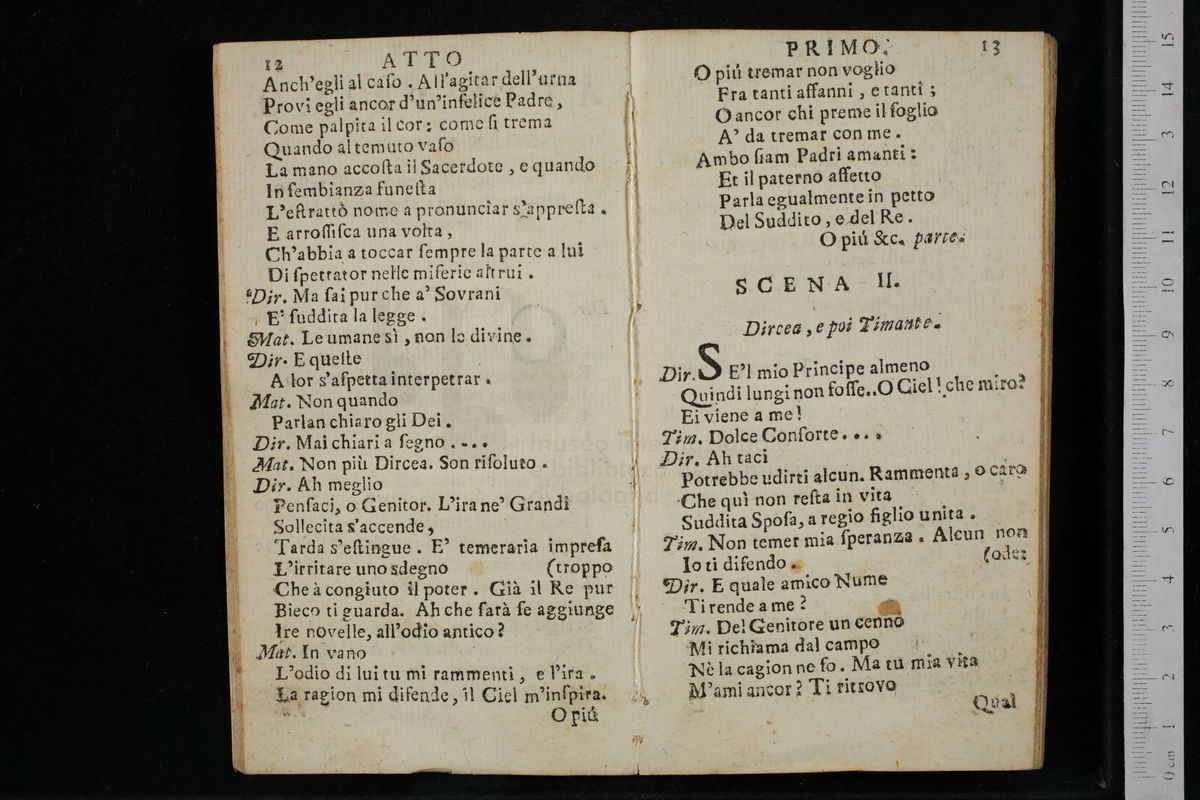 12 ATTO
Anch'egli al caſo . All'agitar dell'urna
Provi egli ancor d'un'infelice Padre,
Come palpita il cor: come ſi trema
Quando al temuto vaſo
La mano accoſta il Sacerdote , e quando
In ſembianza funeſta
L'eſtrattò nome a pronunciar s'appreſta .
E arroſſiſca una volta ,
Ch'abbia a toccar ſempre la parte a lui
Di ſpettator nelle miſerie altrui .
Dir. Ma ſai pur che a' Sovrani
E' ſuddita la legge .
Mat. Le umane sì , non le divine .
Dir. E queſte
A lor s'aſpetta interpetrar .
Mat. Non quando
Parlan chiaro gli Dei .
Dir. Mai chiari a ſegno ....
Mat. Non più Dircea. Son riſoluto .
Dir. Ah meglio
Penſaci, o Genitor. L'ira ne' Grandi
Sollecita s'accende,
Tarda s'eſtingue . E' temeraria impreſa
L'irritare uno sdegno (troppo
Che à congiuto il poter . Già il Re pur
Bieco ti guarda. Ah che ſarà ſe aggiunge
Ire novelle, all'odio antico?
Mat. In vano
L'odio di lui tu mi rammenti , e l'ira .
La ragion mi difende, il Ciel m'inſpira.
O più
PRIMO. 13
O più tremar non voglio
Fra tanti affanni , e tanti ;
O ancor chi preme il ſoglio
A' da tremar con me .
Ambo ſiam Padri amanti :
Et il paterno affetto
Parla egualmente in petto
Del Suddito , e del Re .
O più &c. parte.
SCENA II.
Dircea , e poi Timante.
Dir. SE'l mio Principe almeno
Quindi lungi non foſſe..O Ciel! che miro?
Ei viene a me!
Tim. Dolce Conſorte....
Dir. Ah taci
Potrebbe udirti alcun. Rammenta , o caro
Che quì non reſta in vita
Suddita Spoſa, a regio figlio unita .
Tim. Non temer mia ſperanza . Alcun non
Io ti difendo . (ode:
Dir. E quale amico Nume
Ti rende a me ?
Tim. Del Genitore un cenno
Mi richiama dal campo
Nè la cagion ne ſo . Ma tu mia vita
M'ami ancor? Ti ritrovo
Qual
0 cm 1 2 3 4 5 6 7 8 9 10 11 12 3 14 15